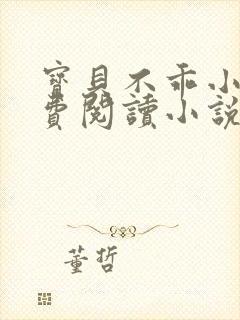 寶貝不乖小
費閱讀小說
董哲